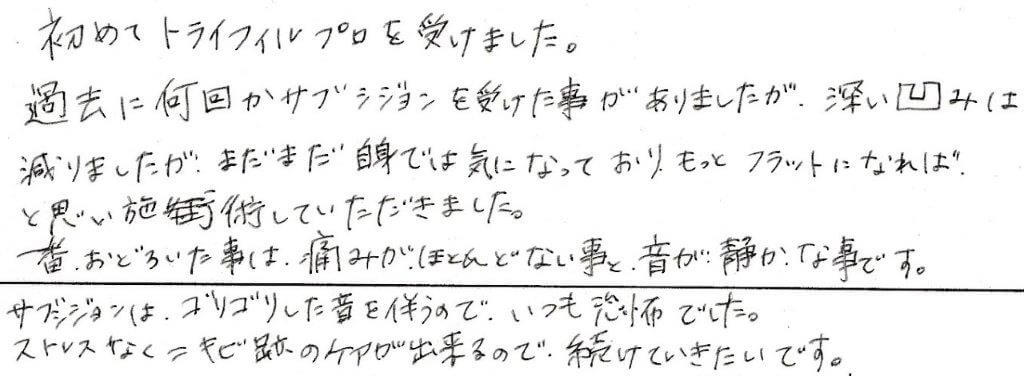 初めてトライフィルプロを受けました。
過去に何回かサブシジョンを受けた事がありましたが、深い凹みは
減りましたが、まだまだ自身では気になっており、もっとフラットになれば、
と思い施術していただきました。
一番、おどろいた事は、痛みがほとんどない事と、音が静かな事です。
サブジジョンは、ゴリゴリした音を伴うので、いつも恐怖でした。
ストレスなくニキビ跡のケアが出来るので、続けていきたいです。